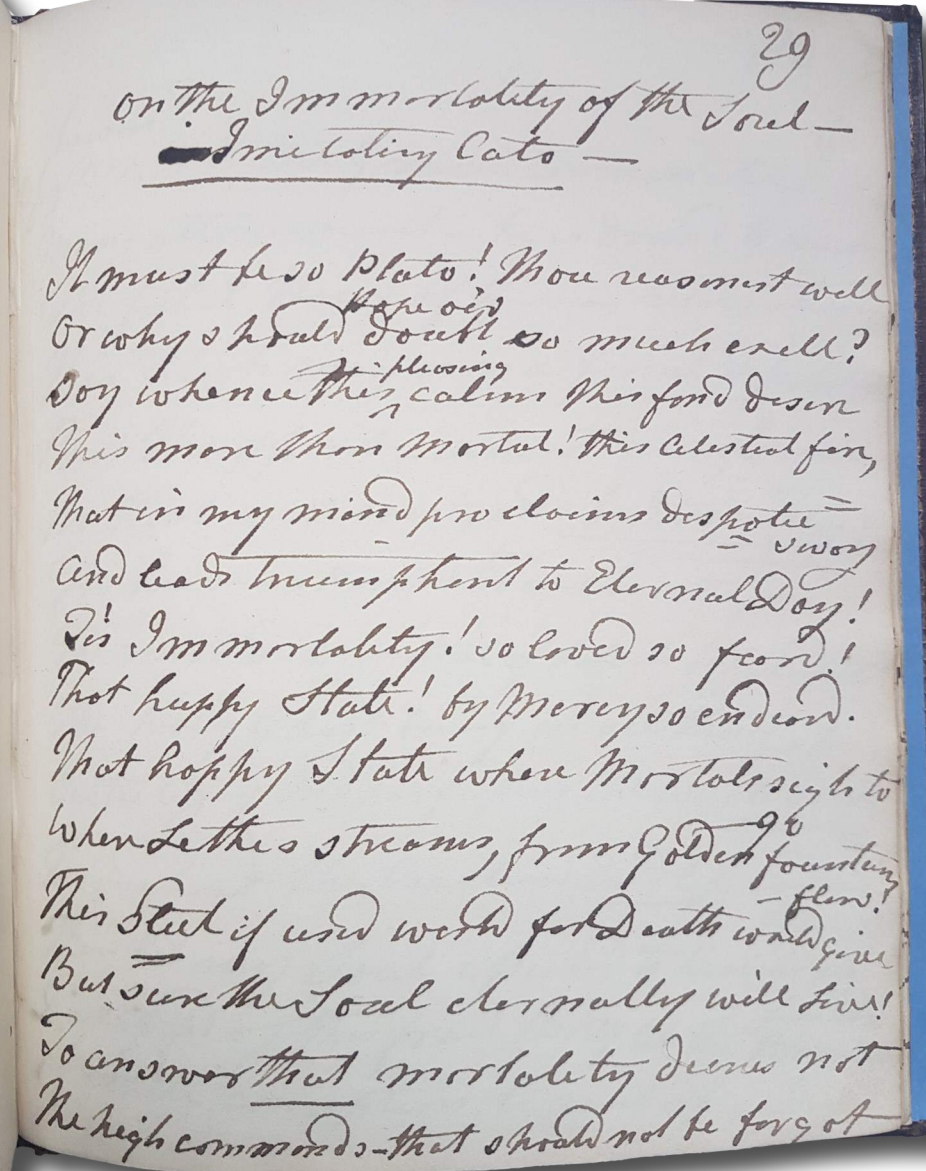 29
On the Immortality of the Soul —
Imitating Cato —
It must be so Plato! Thou reasonest well
Hope o'er
Or why should doubt so much excell?
pleasing
Say whence this calm this fond desire
This more than Mortal! this Celestial fire,
That in my mind proclaims despotic =
= sway
And leads triumphent to Eternal Day!
Tis Immortality! so loved so feard!
That happy State! by Mercy so endeard.
That happy State where Mortals sigh to
go
Where Lethes streams, from Golden fountains
- flow!
This Steel if used would for Death would give
But sure the Soul eternally will Live!
To answer that mortality not
The high commands - that should not be forgot